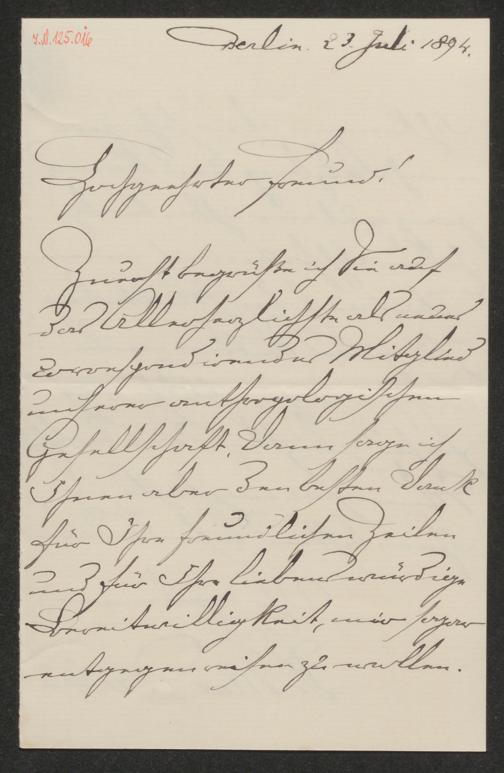 I.N. 125.016
Berlin. 23. Juli 1894.
Hochgeehrter Freund!
Zuerst begrüße ich Sie auf
das Allerherzlichste als neues
correspondirendes Mitglied
unserer anthropologischen
Gesellschaft. Dann sage ich
Ihnen aber den besten Dank
für Ihre freundlichen Zeilen
und für Ihre liebenswürdige
Bereitwilligkeit, mir sogar
entgegenreisen zu wollen.